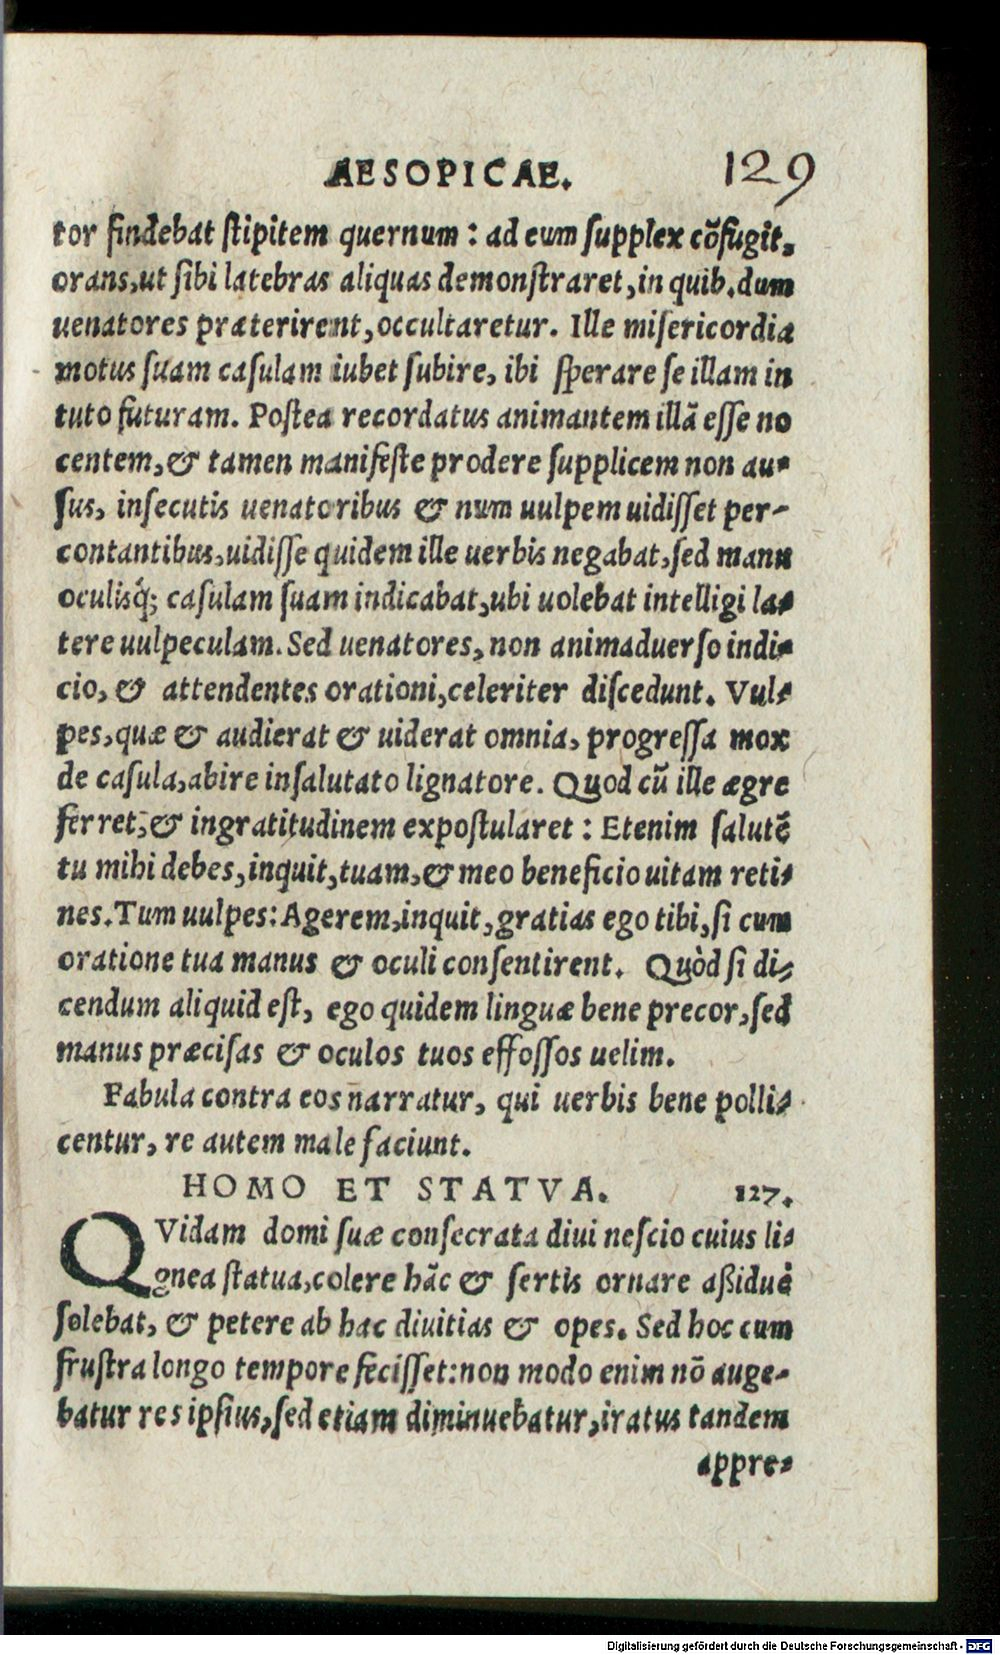 AESOPICAE. 129
tor findebat ſtipitem quernum : ad eum ſupplex cõfugit,
orans, ut ſibi latebras aliquas demonſtraret, in quib. dum
uenatores præterirent, occultaretur. Ille miſericordia
motus ſuam caſulam iubet ſubire, ibi ſperare ſe illam in
tuto futuram. Poſtea recordatus animantem illã eſſe no
centem, & tamen manifeſte prodere ſupplicem non au-
ſus, inſecutis uenatoribus & num uulpem uidiſſet per-
contantibus, uidiſſe quidem ille uerbis negabat, ſed manu
oculisq́; caſulam ſuam indicabat, ubi uolebat intelligi la-
tere uulpeculam. Sed uenatores, non animaduerſo indi-
cio, & attendentes orationi, celeriter diſcedunt. Vul-
pes, quæ & audierat & uiderat omnia, progreſſa mox
de caſula, abire inſalutato lignatore. Quod cũ ille ægre
ferret, & ingratitudinem expoſtularet : Etenim ſalutẽ
tu mihi debes, inquit, tuam, & meo beneficio uitam reti-
nes. Tum uulpes: Agerem, inquit, gratias ego tibi, ſi cum
oratione tua manus & oculi conſentirent. Quòd ſi di-
cendum aliquid eſt, ego quidem linguæ bene precor, ſed
manus præciſas & oculos tuos effoſſos uelim.
Fabula contra eos narratur, qui uerbis bene polli-
centur, re autem male faciunt.
HOMO ET STATVA. 127.
QVidam domi ſuæ conſecrata diui neſcio cuius li-
gnea ſtatua, colere hãc & ſertis ornare aßiduè
ſolebat, & petere ab hac diuitias & opes. Sed hoc cum
fruſtra longo tempore feciſſet: non modo enim nõ auge-
batur res ipſius, ſed etiam diminuebatur, iratus tandem
appre-
Digitalisierung gefördert durch die Deutsche Forschungsgemeinschaft - DFG